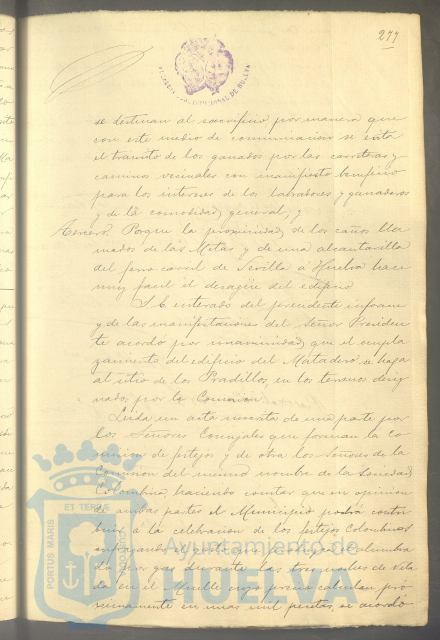 277
se destinan al sacrificio por manera que
con este medio de comunicacion se evita
el transito de los ganados por las carreteras y
caminos vecinales con manifiesto beneficio
para los intereses de los labradores y ganaderos
y de la comodidad general, y
Tercero. Porque la proximidad de los caños lla
mados de las Metas y de una alcantarilla
del ferro carril de Sevilla á Huelva hace
muy facil el desagüe del edificio
S. E. enterado del precedente informe
y de las manifestaciones del Señor Presiden
te acordó por unanimidad que el empla
zamiento del edificio del Matadero se haga
al sitio de los Pradillos, en los terrenos desig
nados por la Comision.
Leida un acta suscrita de una parte por
los Señores Concejales que forman la Co
mision de festejos y de otra los Señores de la
Comision del mismo nombre de la Sociedad
Colombina, haciendo constar que en opinion
de ambas partes el Municipio podrá contri
buir á la celebracion de los festejos Colombinos
el
do por gas durante las tres noches de vela
da en el Muelle cuyo precio calculan pró
ximamente en unas mil pesetas, se acordó
PORTUS MARIS
ET TERRAE
CUSTODIA
Ayuntamiento de
HUELVA